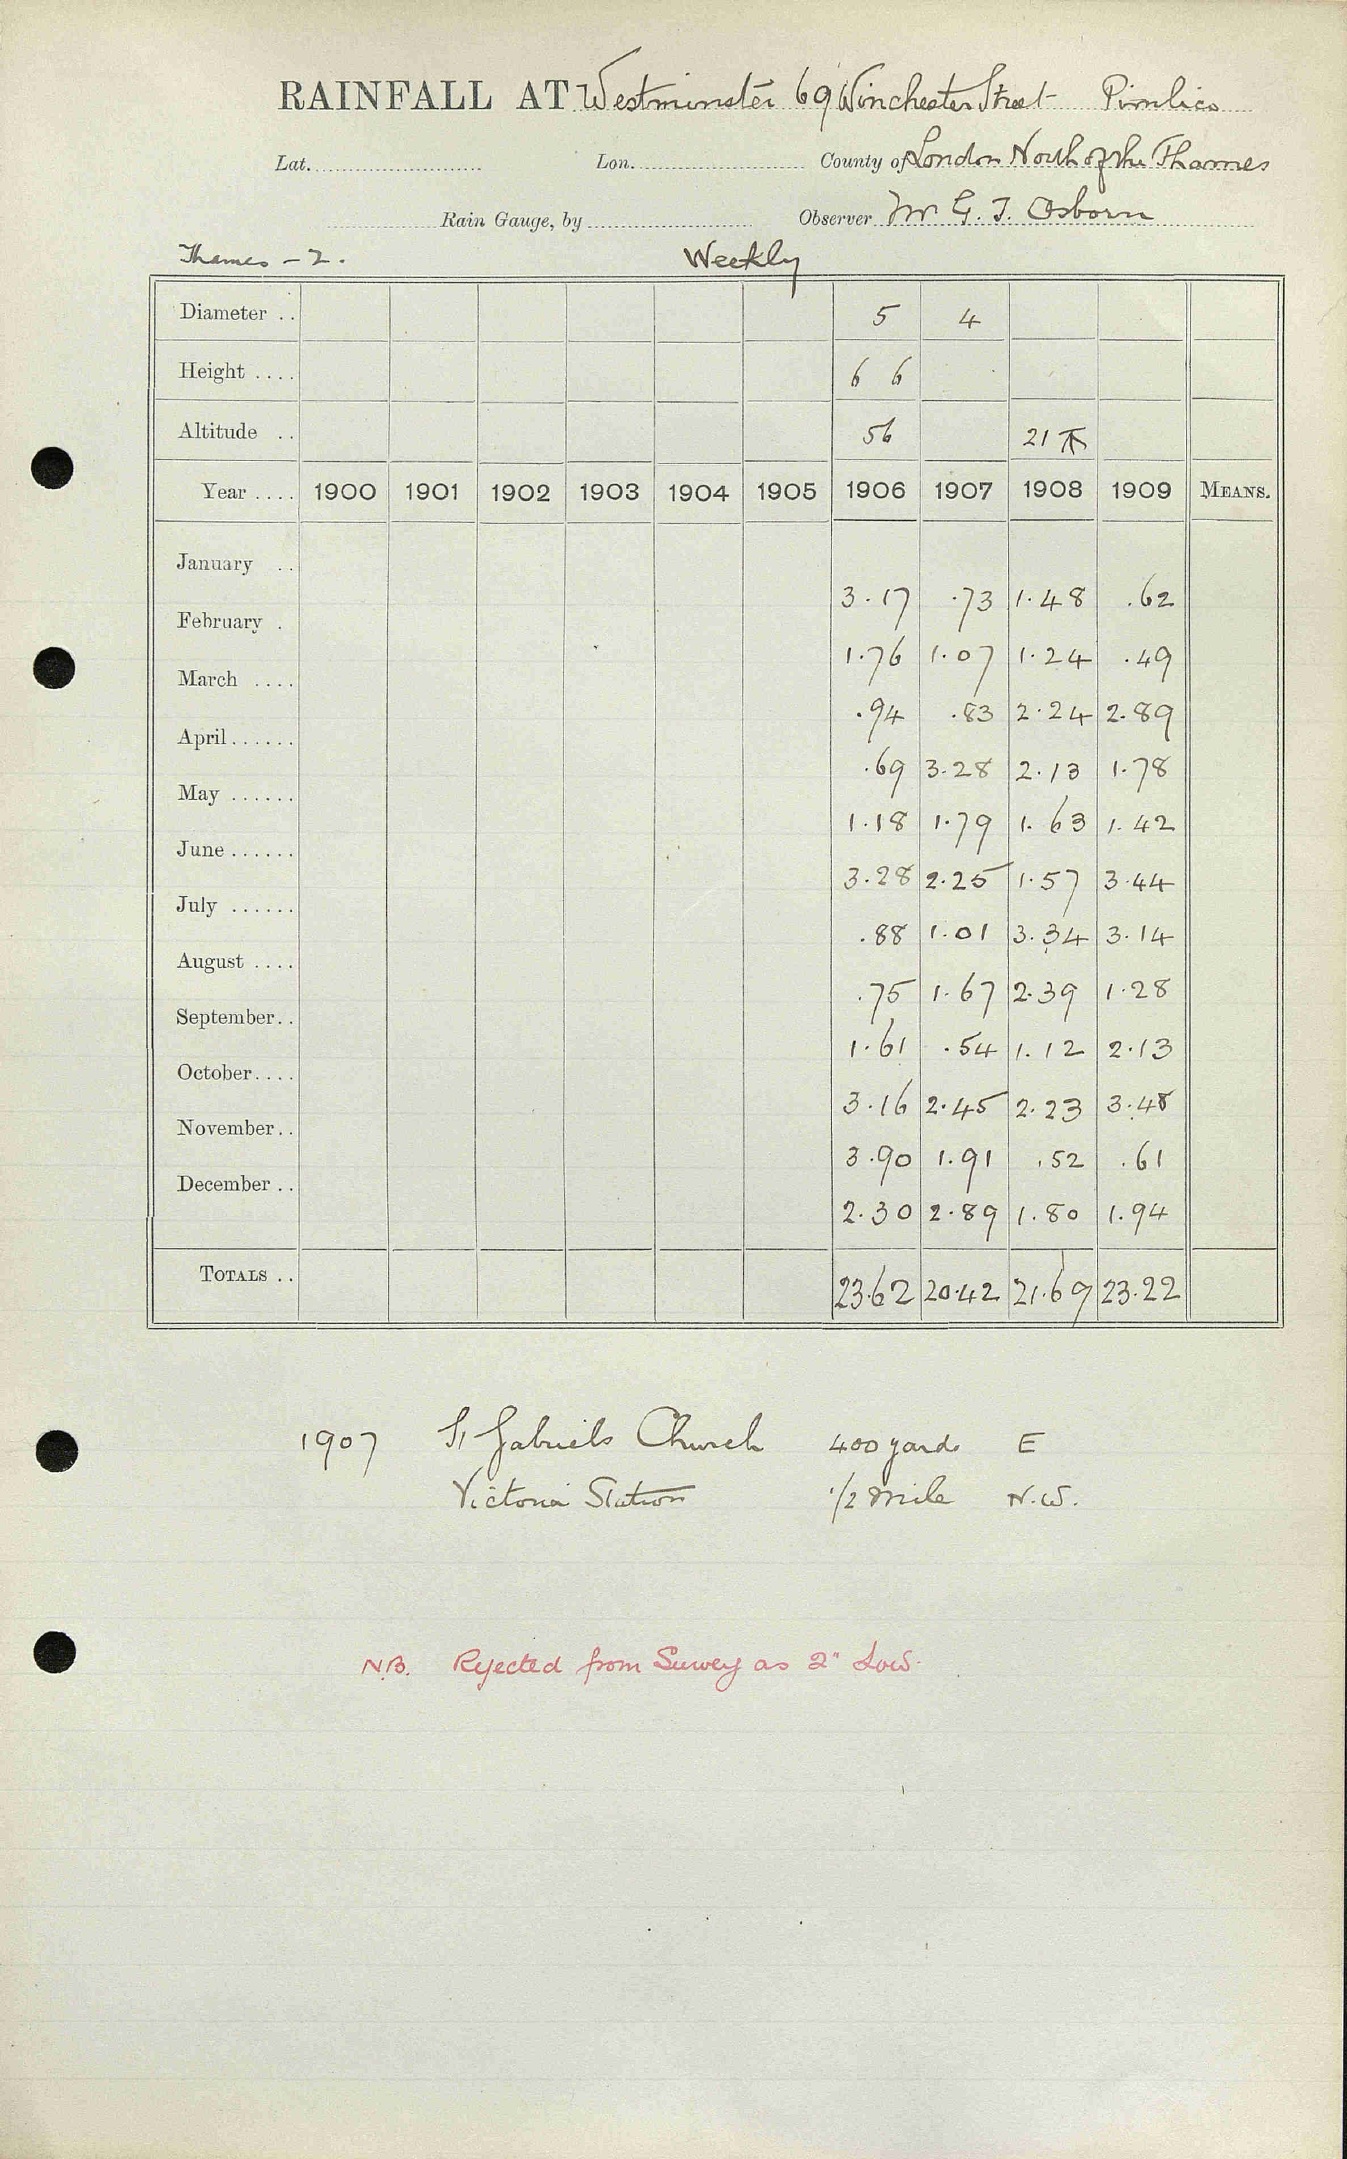 RAINFALL AT Westminster 69 Winchester Street Pimlico
Lat. Lon. County of London North of the Thames
Rain Gauge, by Observer Mr G. T. Osborn
Thames - 2. Weekly
Diameter .. 5 4
Height .... 6 6
Altitude .. 56 21
Year .... 1900 1901 1902 1903 1904 1905 1906 1907 1908 1909 MEANS.
January .. 3.17 .73 1.48 .62
February . 1.76 1.07 1.24 .49
March .... .94 .83 2.24 2.89
April ...... .69 3.28 2.13 1.78
May ...... 1.18 1.79 1.63 1.42
June ...... 3.28 2.25 1.57 3.44
July ...... .88 1.01 3.34 3.14
August .... .75 1.67 2.39 1.28
September.. 1.61 .54 1.12 2.13
October.... 3.16 2.45 2.23 3.48
November.. 3.90 1.91 .52 .61
December .. 2.30 2.89 1.80 1.94
TOTALS .. 23.62 20.42 21.69 23.22
1907 St Gabriels Church 400 yards E
Victoria Station 1/2 mile N.W.
N.B. Rejected from Survey as 2" Low.